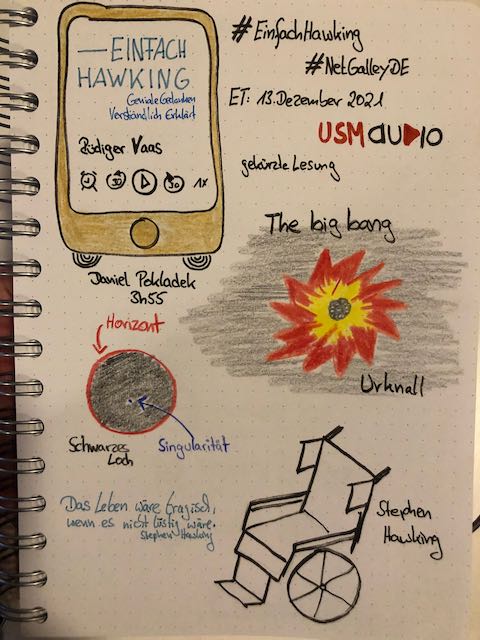 EINFACH
HAWKING
Geniale Gedanken
Verständlich Erklärt
Rüdiger Vaas
30
30
1x
Daniel Pokladek
3h55
#EinfachHawking
#NetGalleyDE
ET: 13. Dezember 2021
USM AUDIO
gekürzte Lesung
The big bang
Urknall
Horizont
Schwarzes
Loch
Singularität
Das Leben wäre tragisch,
wenn es nicht lustig wäre.
Stephen Hawking
Stephen
Hawking